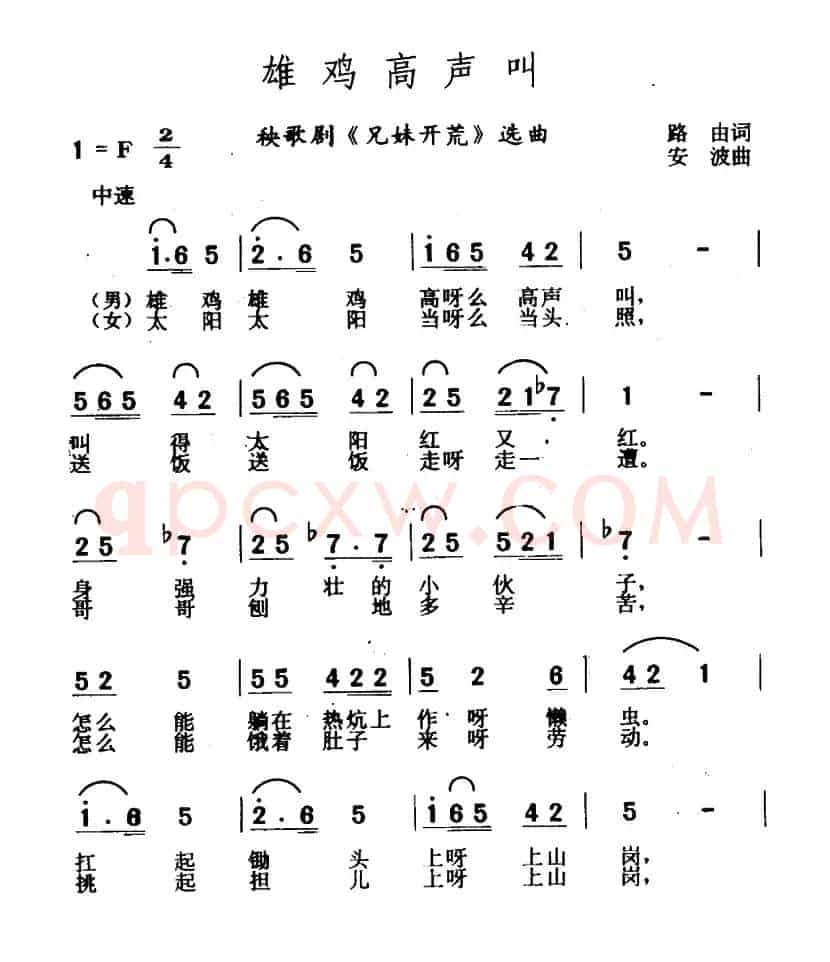 雄鸡高声叫
1=F 2/4 秧歌剧《兄妹开荒》选曲 路由词
安波曲
中速
1·6 5 | 2·6 5 | 165 42 | 5 - |
(男)雄鸡雄鸡高呀么高声叫,
(女)太阳太阳当呀么当头照,
565 42 | 565 42 | 25 21♭7 | 1 - |
叫得太阳红又红。
送饭送饭走呀走一遭。
25 ♭7 | 25 ♭7·7 | 25 521 | ♭7 - |
身强力壮的小伙子,
哥哥刨地多辛苦,
52 5 | 55 422 | 5 2 6 | 42 1 |
怎么能躺在热炕上作呀懒虫。
怎么能饿着肚子来呀劳动。
1·6 5 | 2·6 5 | 165 42 | 5 - |
扛起锄头上呀上山岗,
挑起担儿上呀上山岗,
qpcxw.COM